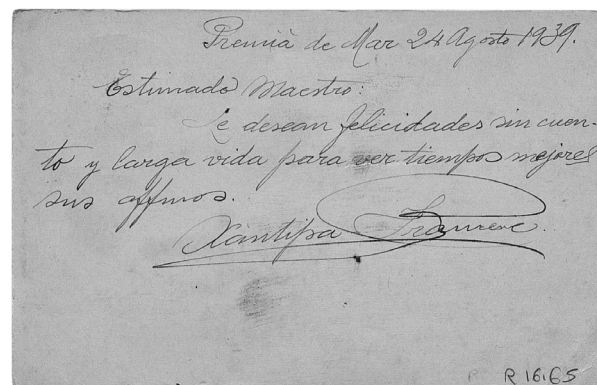 Premiá de Mar 24 Agosto 1939.
Estimado Maestro:
Le desean felicidades sin cuen-
to y larga vida para ver tiempos mejores
sus affmos.
Xantipa
R 16.165